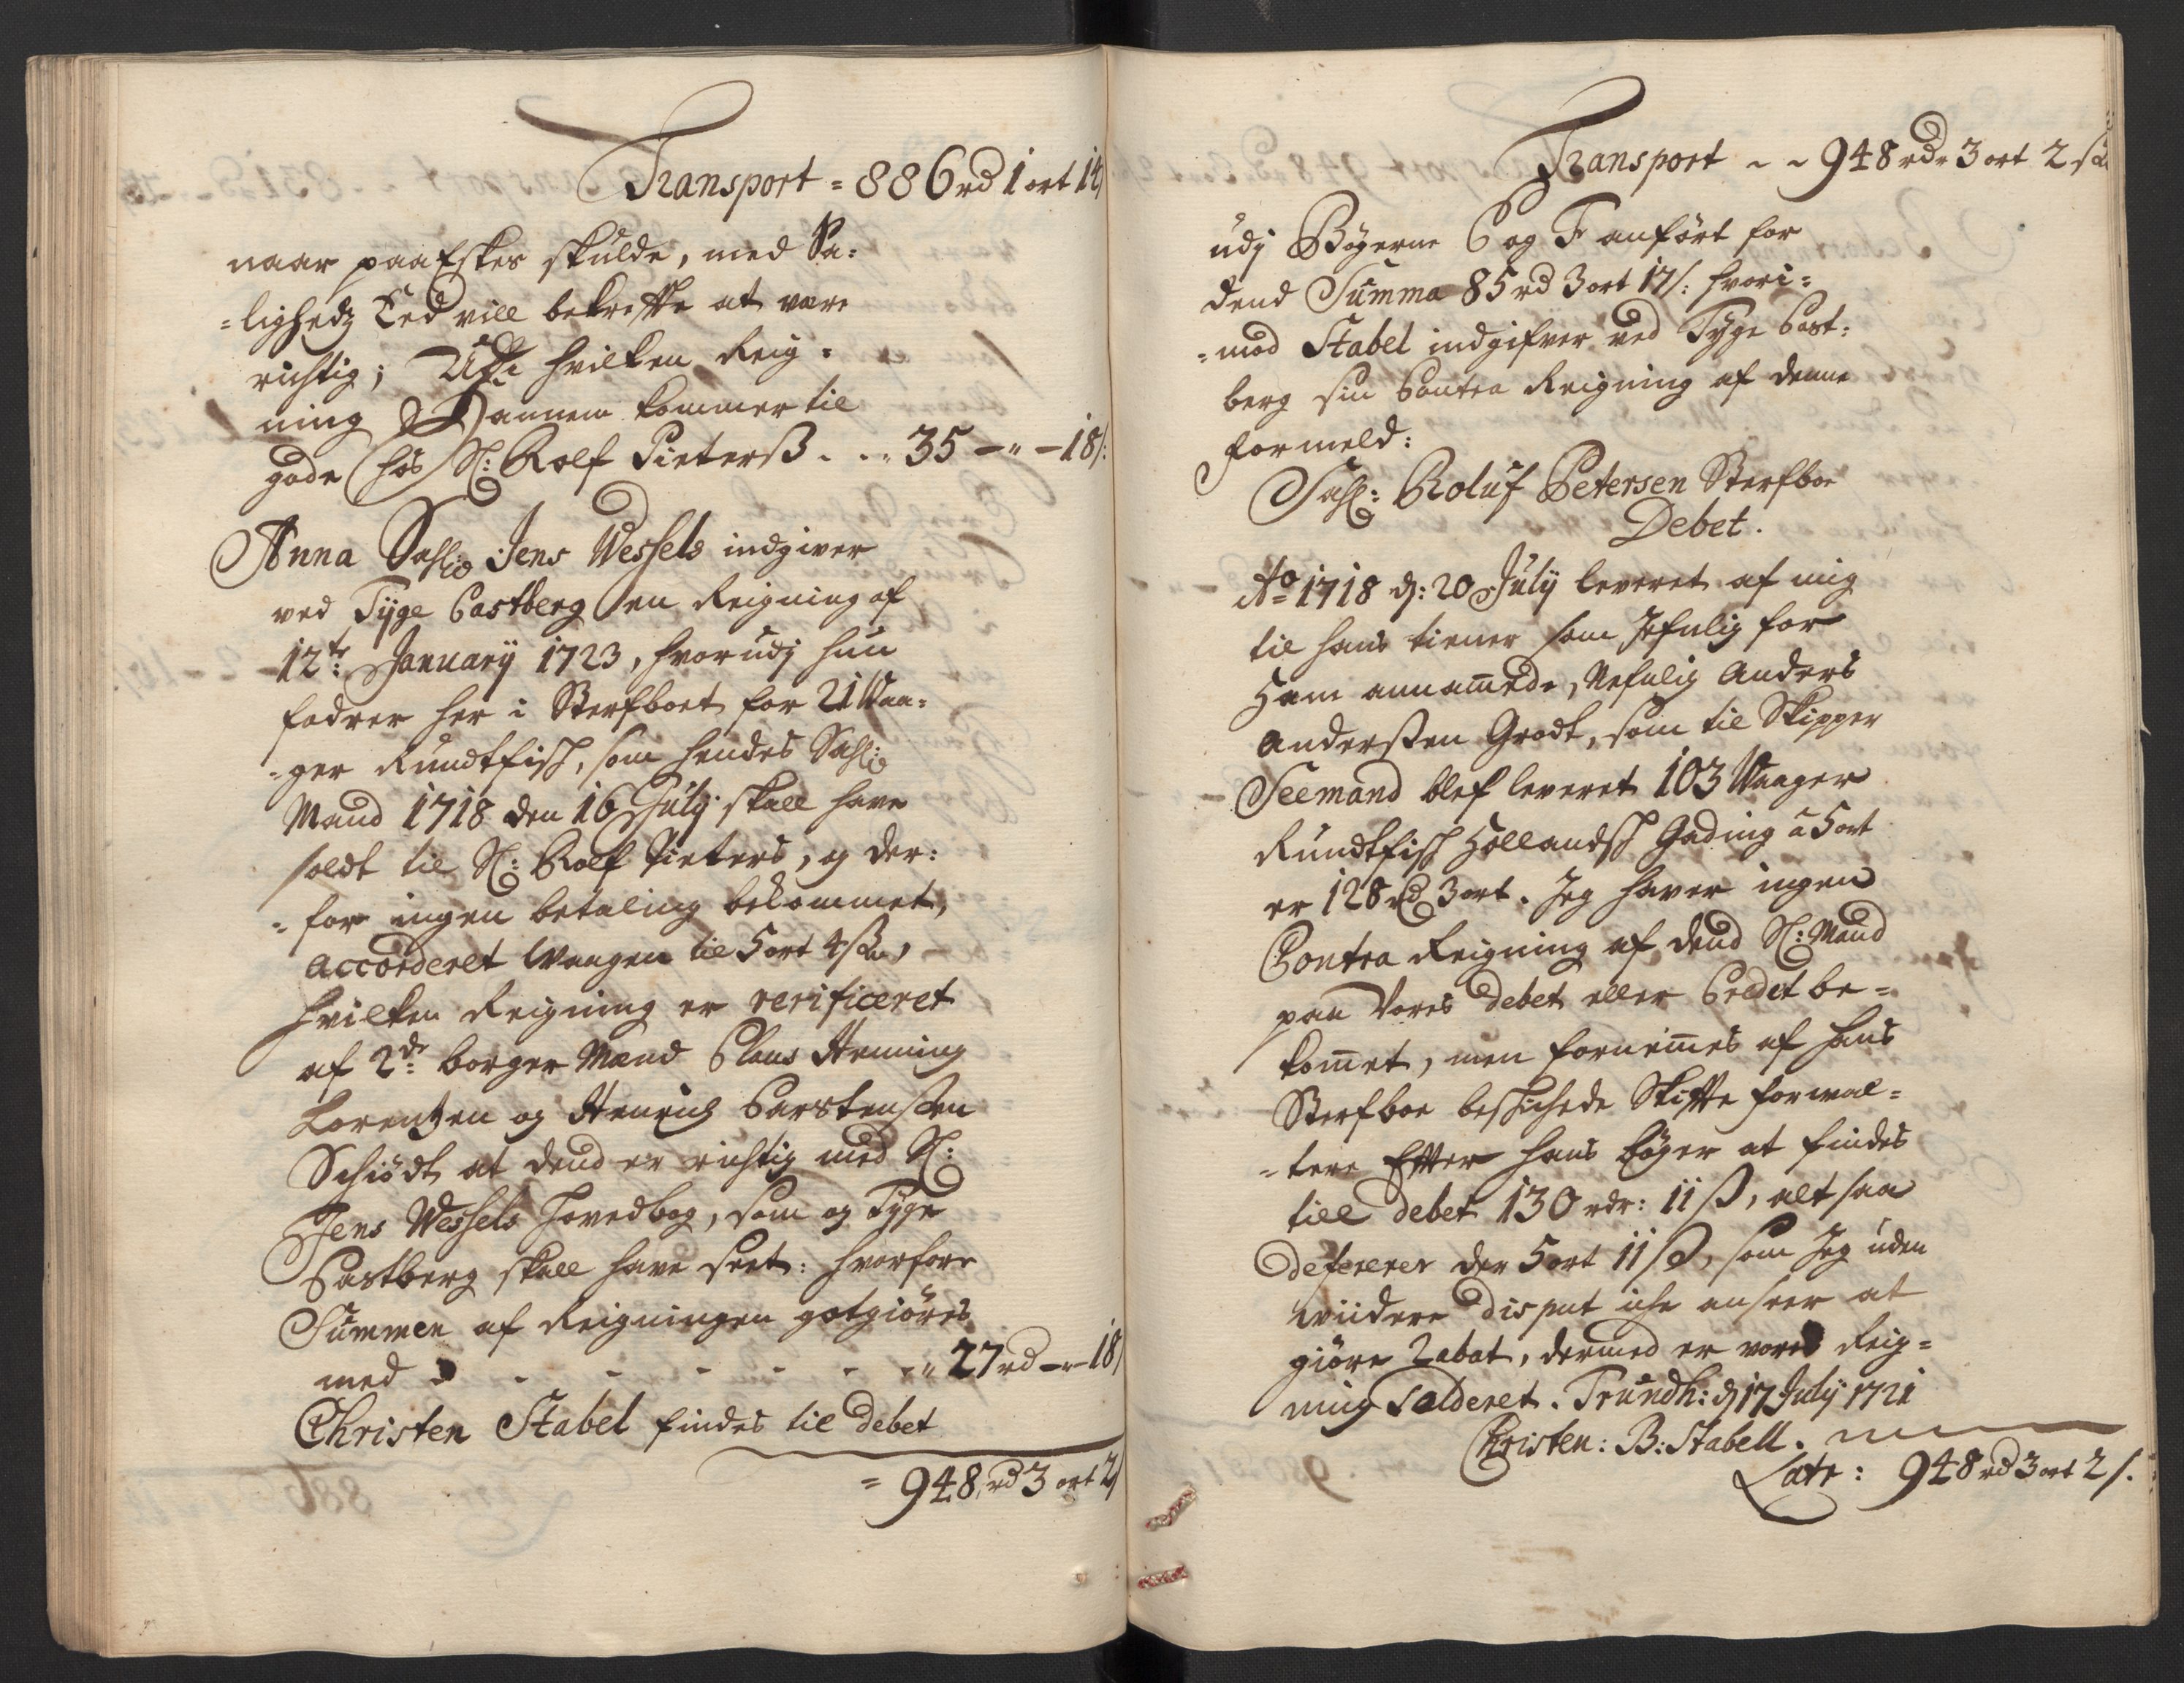 Transport = 886 rd 1 ort 14
naar paa Eskes skulde, med Sa:
=lighedz Eed vill bekrefte at være
richtig; Udi hvilken Reig=
ning Hannem kommer til
gode hos Sl: Rolf Pieterß . . " 35 – " – 18 s:
Anna Sahlig Jens Wessels indgiver
ved Tyge Castberg en Reigning af
12te: January 1723, hvorudj hun
fodrer her i Sterfboet for 21 Waa=
=ger Rundtfish, som hendes Sahlig
Mand 1718 den 16 July skall have
soldt til Sl: Rolf Pieters, og der:
=for ingen betaling bekommet,
accorderet Waagen til 5 ort 4 s,
hvilken Reigning er verificeret
af 2de borger Mænd Claus Henning
Lorentzen og Henrich Carstensen
Schiødt at dend er richtig med Sl:
Jens Wessels hovedbog, som og Tyge
Castberg skall have seet: hvorfore
Summen af Reigningen gotgiøres
med - - - - - - " 27 rd – " – 18
Christen Stabel findes til debet
= 948 rd 3 ort 2
Transport - - 948 rdr 3 ort 2 s
udj Bøgerne C og F anført for
dend Summa 85 rd 3 ort 17 s: hvori=
=mod Stabel indgifver ved Tyge Cast:
berg sin Contra Reigning af denne
formeld:
Sahl: Roluf Petersen Sterfboe
Debet.
Ao 1718 d: 20 July leveret af mig
til hans tiener som
Ham annammede, Nefnlig Anders
Anderßen Grodt, som til Skipper
Seemand blef leveret 103 Waager
Rundtfish Hollandsh Gading a 5 ort
er 128 rd 3 ort. Jeg haver ingen
Contra Reigning af dend Sl: Mand
paa Vores debet eller Credit be=
kommet, men fornemmes af hans
Sterfboe beskichede Skifte forwal=
=tere Efter hans bøger at findes
till debet 130 rdr: 11 ß, alt saa
defererer der 5 ort 11 ß, som Jeg uden
wiidere disput iche anseer at
giøre Rabat, dermed er vores Reig=
ning Salderet. Trundh: d 17 July 1721
Christen: B: Stabell.
Latr: 948 rd 3 ort 2 s.